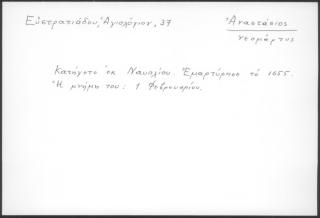 Εὐστρατιάδου, Ἁγιολόγιον, 37
Ἀναστάσιος
νεομάρτυς
Κατήγετο ἐκ Ναυπλίου. Ἐμαρτύρησε τό 1655.
Ἡ μνήμη του: 1 Φεβρουαρίου.